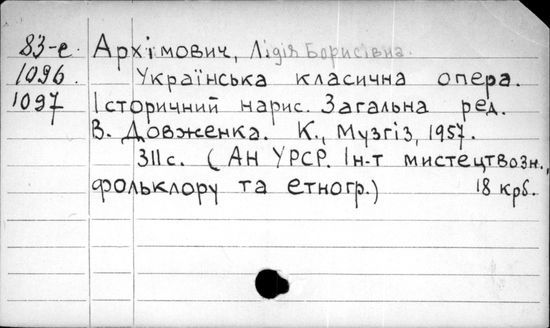 83-е Архімович, Лідія Борисівна.
1096 Українська класична опера.
1097 Історичний нарис. Загальна ред.
В. Довженка. К., Музгіз, 1957.
311 с. (АН УРСР. Ін-т мистецтвозн.,
фольклору та етногр.) 18 крб.